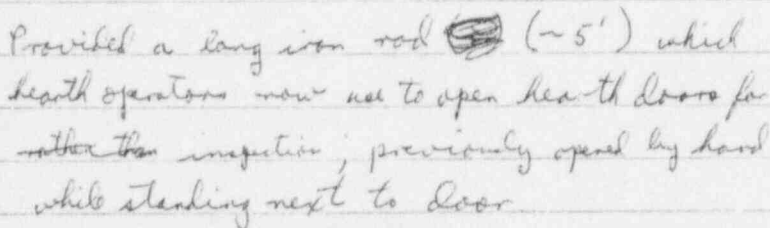 Provided a long iron rod (~5') which
hearth operators now use to open hearth doors for
rather than inspection; previously opened by hand
while standing next to door